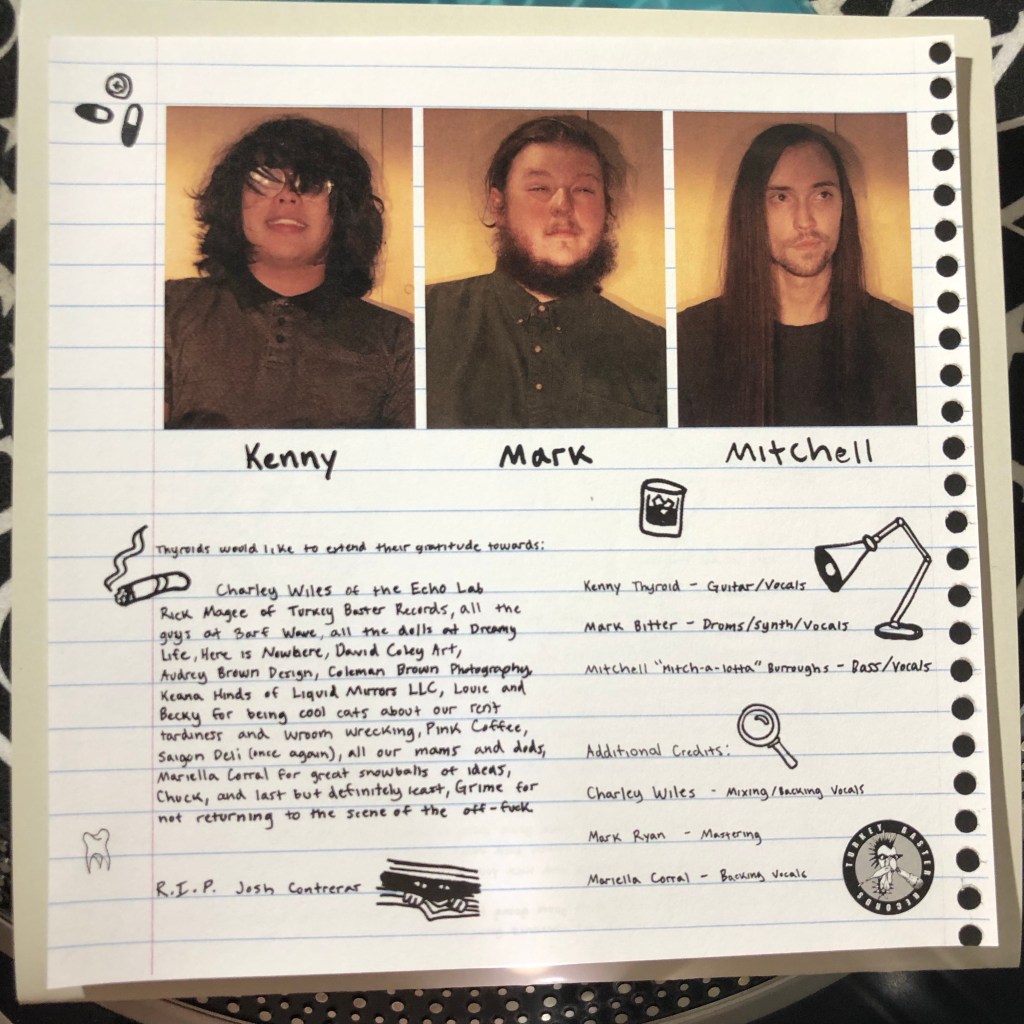 Kenny
Mark
Mitchell
Thyroids would like to extend their gratitude towards:
Charley Wiles of the Echo Lab
Rick Magee of Turkey Baster Records, all the
guys at Barf Wave, all the dolls at Dreamy
Life, Here is Nowhere, David Coley Art,
Audrey Brown Design, Coleman Brown Photography,
Keana Hinds of Liquid Mirrors LLC, Louie and
Becky for being cool cats about our rent
tardiness and wroom wrecking, Pink Coffee,
Saigon Deli (once again), all our mams and dads,
Mariella Corral for great snowballs of ideas,
Chuck, and last but definitely least, Grime for
not returning to the scene of the off-fuck
R.I.P. Josh Contreras
Kenny Thyroid - Guitar/Vocals
Mark Bitter - Drums/Synth/Vocals
Mitchell "Mitch-a-lotta" Burroughs - Bass/Vocals
Additional Credits:
Charley Wiles - Mixing/Backing Vocals
Mark Ryan - Mastering
Mariella Corral - Backing Vocals
TURKEY BASTER
RECORDS